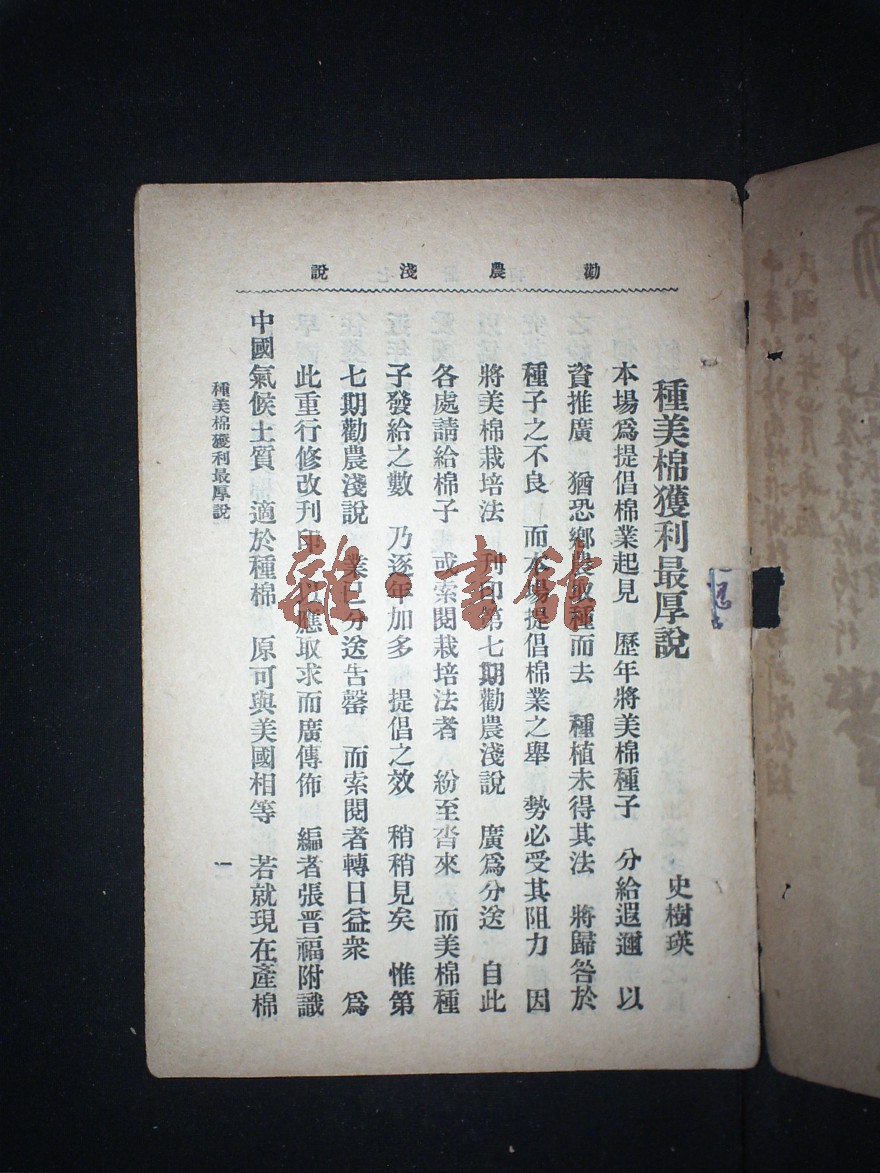 勸農淺說
種美棉獲利最厚說
史樹瑛
本場爲提倡棉業起見　歷年將美棉種子　分給遐邇　以
資推廣　猶恐鄉農取種而去　種植未得其法　將歸咎於
種子之不良　而本場提倡棉業之舉　勢必受其阻力　因
將美棉栽培法　刊印第七期勸農淺說　廣爲分送　自此
各處請給棉子　或索閱栽培法者　紛至沓來　而美棉種
子發給之數　乃逐年加多　提倡之效　稍稍見矣　惟第
七期勸農淺說　業已分送告罄　而索閱者轉日益衆　爲
此重行修改刊印　以應取求而廣傳佈　編者張晋福附識
中國氣候土質　適於種棉　原可與美國相等　若就現在產棉
種美棉獲利最厚說
一
雜·書館